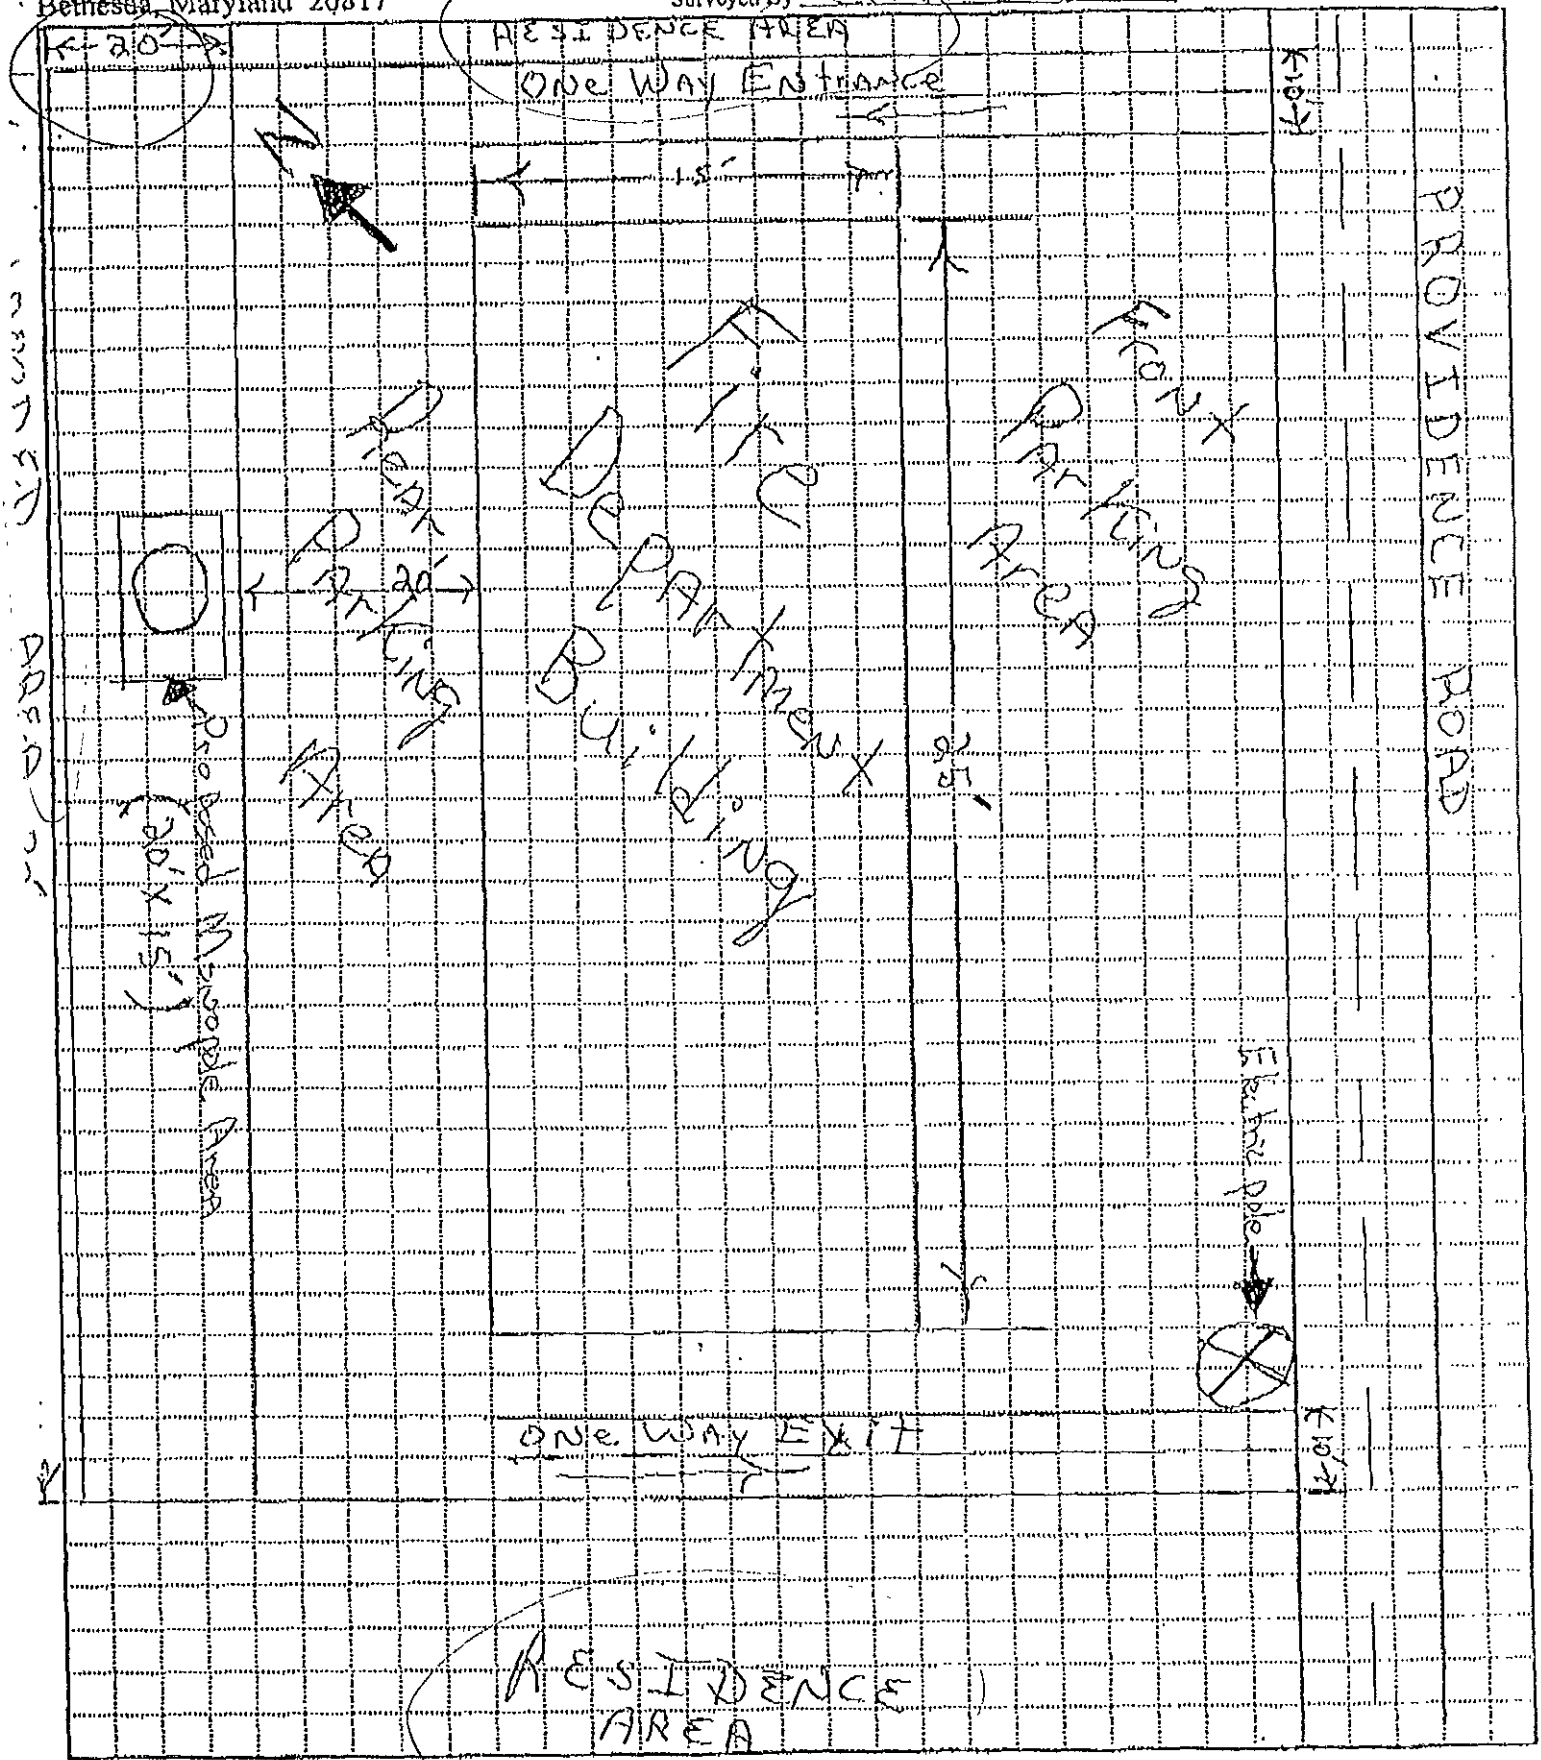 Bethesda, Maryland 20817
Surveyed By
20'
RESIDENCE AREA
ONE WAY ENTRANCE
10'
N
15'
PROVIDENCE ROAD
Front
Parking
Area
Fire
Department
Building
Rear
Parking
Area
20'
25'
Proposed Monopole Area
(20' X 15')
Electric Pole
ONE WAY EXIT
10'
RESIDENCE
AREA
AREA